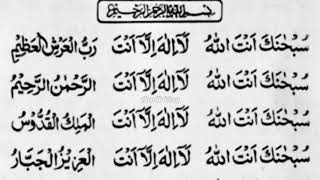 بسم الله الرحمن الرحيم
سُبْحٰنَكَ اَنْتَ اللهُ لَآ اِلٰهَ اِلَّا اَنْتَ رَبُّ الْعَرْشِ الْعَظِيْمِ
سُبْحٰنَكَ اَنْتَ اللهُ لَآ اِلٰهَ اِلَّا اَنْتَ الرَّحْمٰنُ الرَّحِيْمُ
سُبْحٰنَكَ اَنْتَ اللهُ لَآ اِلٰهَ اِلَّا اَنْتَ الْمَلِكُ الْقُدُّوْسُ
سُبْحٰنَكَ اَنْتَ اللهُ لَآ اِلٰهَ اِلَّا اَنْتَ الْعَزِيْزُ الْجَبَّارُ